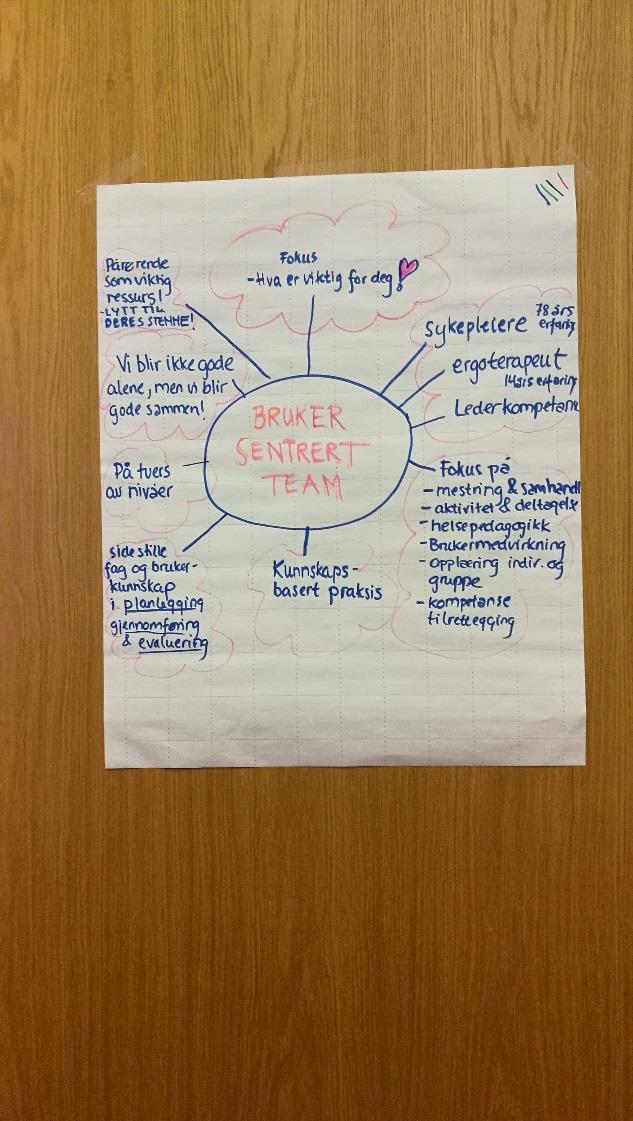 Fokus
-Hva er viktig for deg!
Pårørende
som viktig
ressurs!
-LYTT TIL
DERES STEMME!
Vi blir ikke gode
alene, men vi blir
gode sammen!
På tvers
av nivåer
side stille
fag og bruker-
kunnskap
i planlegging
gjennomføring
& evaluering
BRUKER
SENTRERT
TEAM
Kunnskaps-
basert praksis
Sykepleiere 78 års
erfaring
ergoterapeut
14 års erfaring
Lederkompetanse
Fokus på
- mestring & samhandl
- aktivitet & deltagelse
- helsepedagogikk
- Brukermedvirkning
- Opplæring indiv. og
gruppe
- kompetanse
tilrettlegging